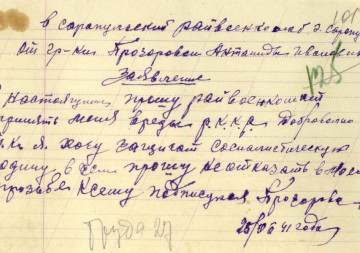 101
в сарапульский райвоенкомат г. Сарапу
от гр-ки Прозоровой Антаниды Ивановны
125
Заявление
Настоящим прошу райвоенкомат
принять меня в ряды р.К.К.а. Добровольно
т.к. Я хочу защищать социалистическую
родину, в чем прошу не отказать в моей
прозьбе к сему подписуюсь Прозорова
25/VI 41 года
труда 27